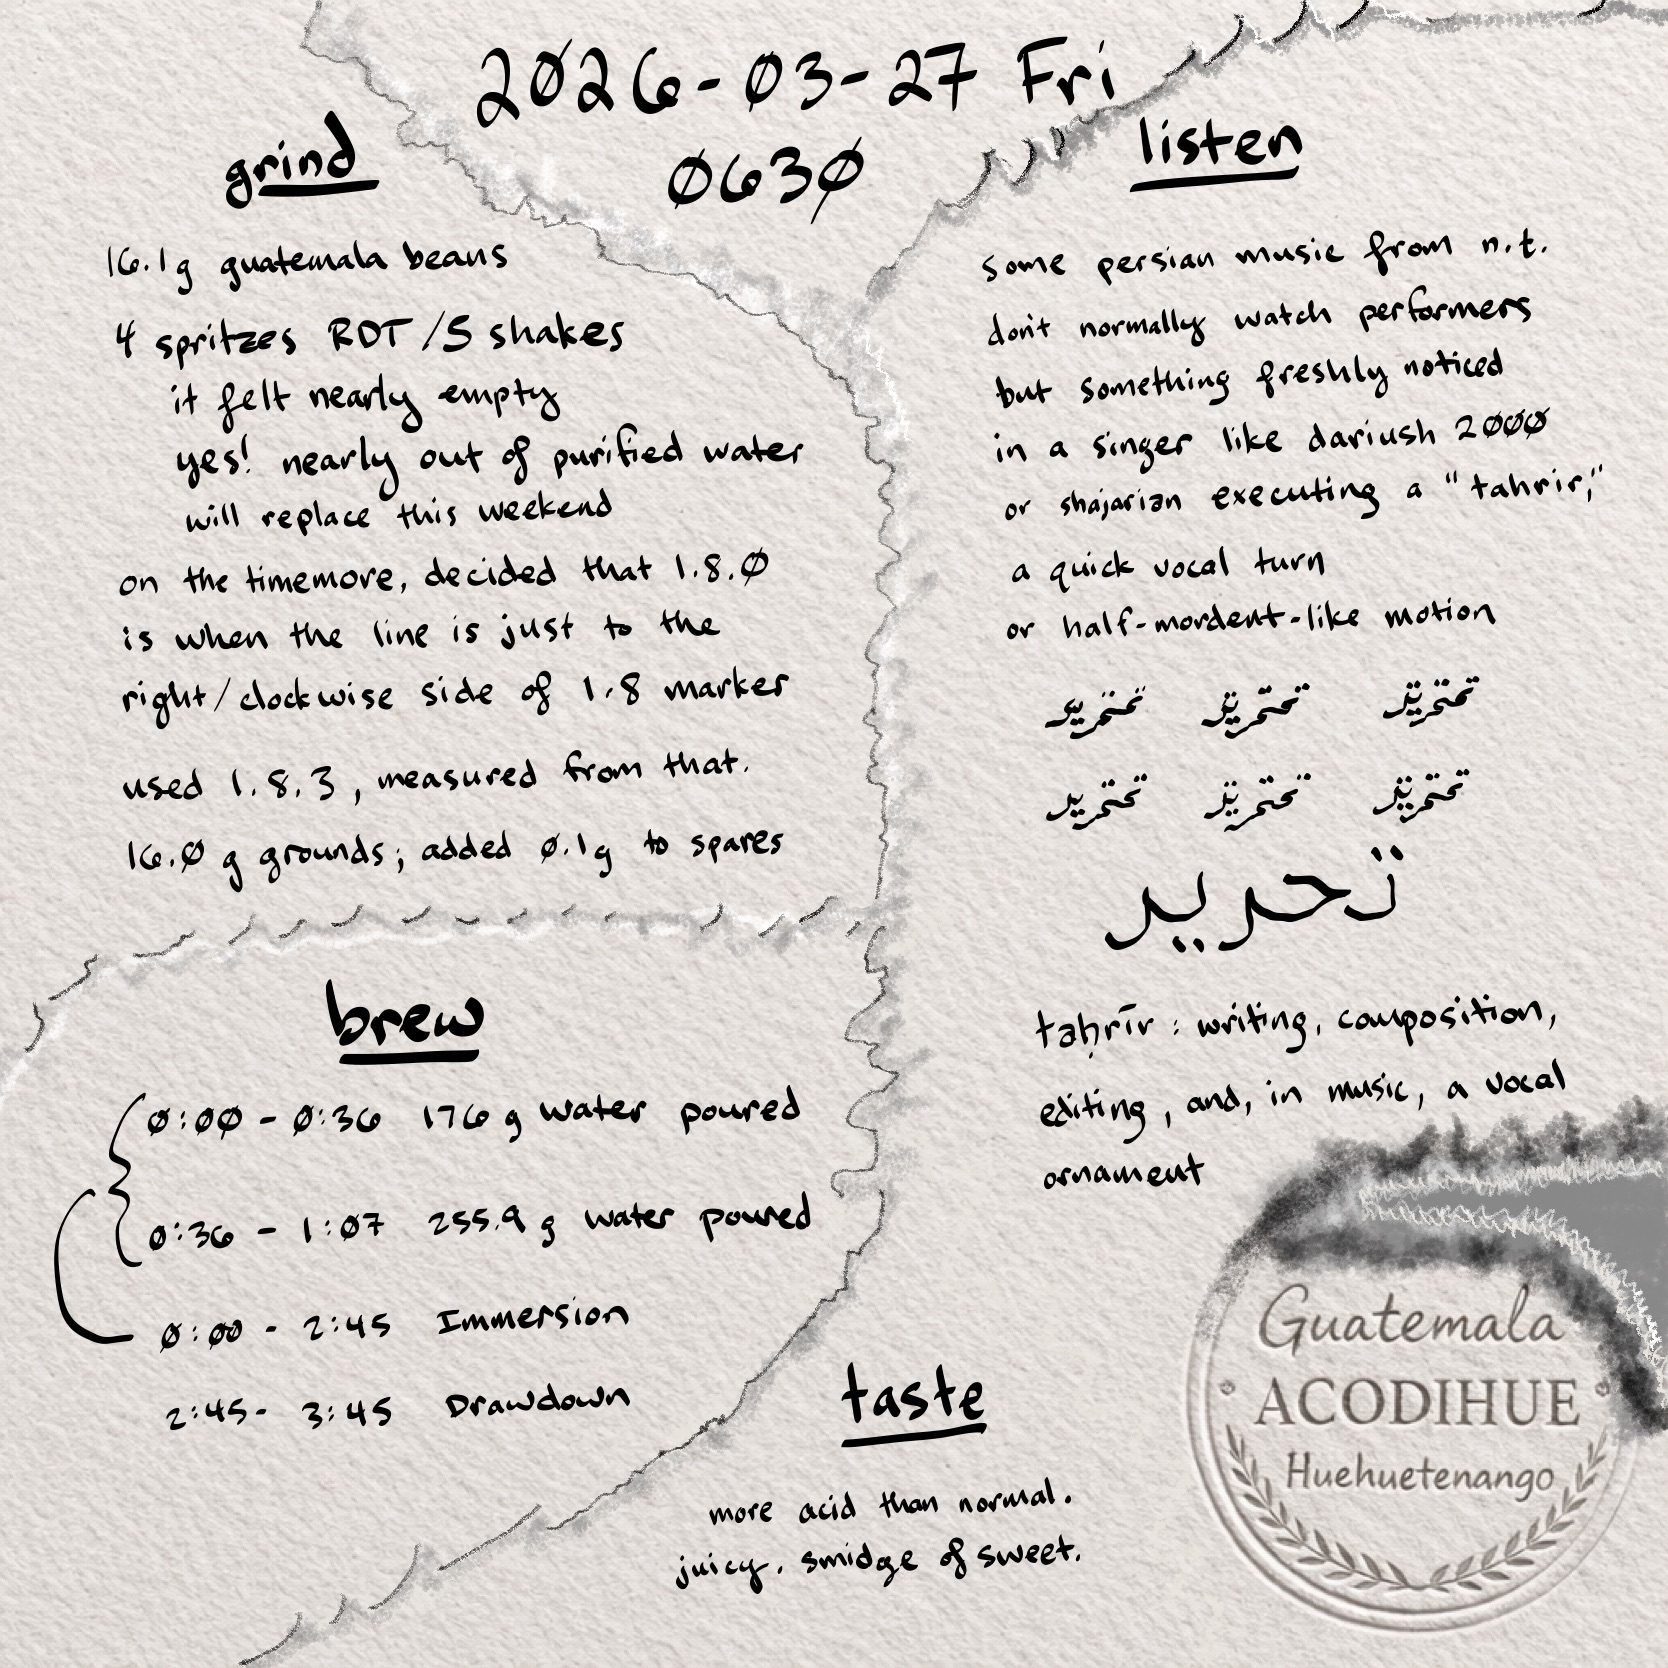 2026-03-27 Fri
0630
grind
16.1g guatemala beans
4 spritzes RDT/5 shakes
it felt nearly empty
yes! nearly out of purified water
will replace this weekend
on the timemore, decided that 1.8.0
is when the line is just to the
right/clockwise side of 1.8 marker
used 1.8.3, measured from that.
16.0 g grounds; added 0.1g to spares
brew
0:00 - 0:36 176 g water poured
0:36 - 1:07 255.9 g water poured
0:00 - 2:45 Immersion
2:45- 3:45 Drawdown
listen
some persian music from n.t.
don't normally watch performers
but something freshly noticed
in a singer like dariush 2000
or shajarian executing a "tahrir,"
a quick vocal turn
or half-mordent-like motion
تحریر
taḥrīr : writing, composition,
editing, and, in music, a vocal
ornament
taste
more acid than normal.
juicy. smidge of sweet.
Guatemala
ACODIHUE
Huehuetenango